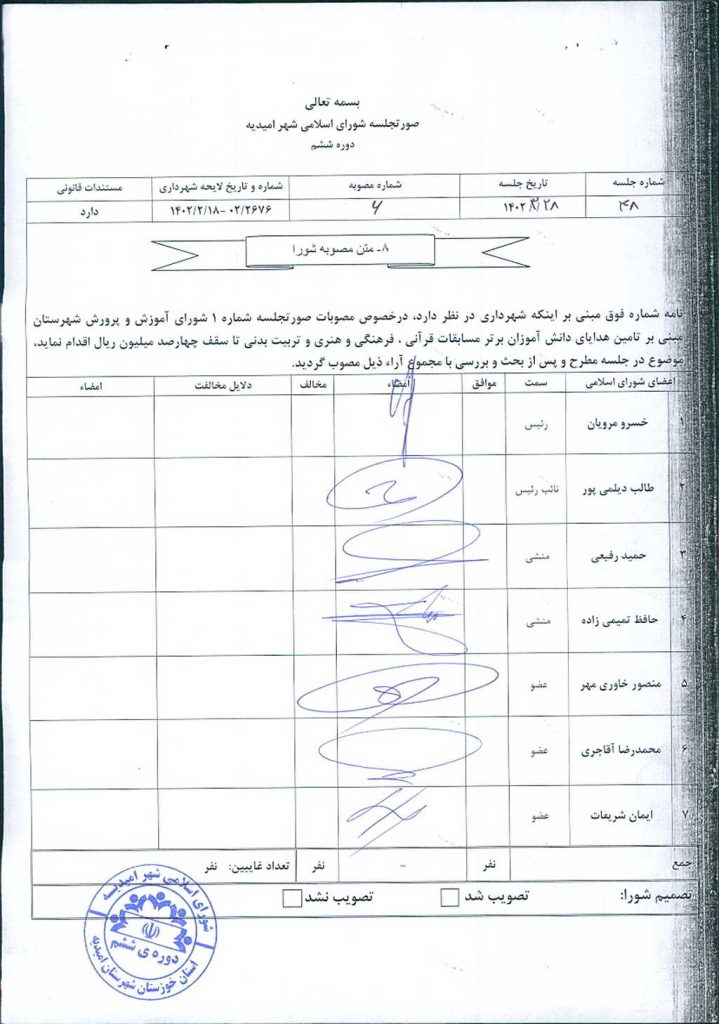 بسمه تعالی
صورتجلسه شورای اسلامی شهر امیدیه
دوره ششم
شماره جلسه تاریخ جلسه شماره مصوبه شماره و تاریخ لایحه شهرداری مستندات قانونی
۴۸ ۱۴۰۲/ /۲۸ ۰۲/۲۶۷۶ -۱۴۰۲/۲/۱۸ دارد
۸ـ متن مصوبه شورا
نامه شماره فوق مبنی بر اینکه شهرداری در نظر دارد، درخصوص مصوبات صورتجلسه شماره ۱ شورای آموزش و پرورش شهرستان
مبنی بر تامین هدایای دانش آموزان برتر مسابقات قرآنی ، فرهنگی و هنری و تربیت بدنی تا سقف چهارصد میلیون ریال اقدام نماید،
موضوع در جلسه مطرح و پس از بحث و بررسی با مجموع آراء ذیل مصوب گردید.
اعضای شورای اسلامی سمت موافق امضاء مخالف دلایل مخالفت امضاء
۱ خسرو مرویان رئیس
۲ طالب دیلمی پور نائب رئیس
۳ حمید رفیعی منشی
۴ حافظ تمیمی زاده منشی
۵ منصور خاوری مهر عضو
۶ محمدرضا آقاجری عضو
۷ ایمان شریفات عضو
جمع نفر - نفر تعداد غایبین: نفر
تصمیم شورا: تصویب شد تصویب نشد
شورای اسلامی شهر امیدیه
دوره ی ششم
استان خوزستان شهرستان امیدیه